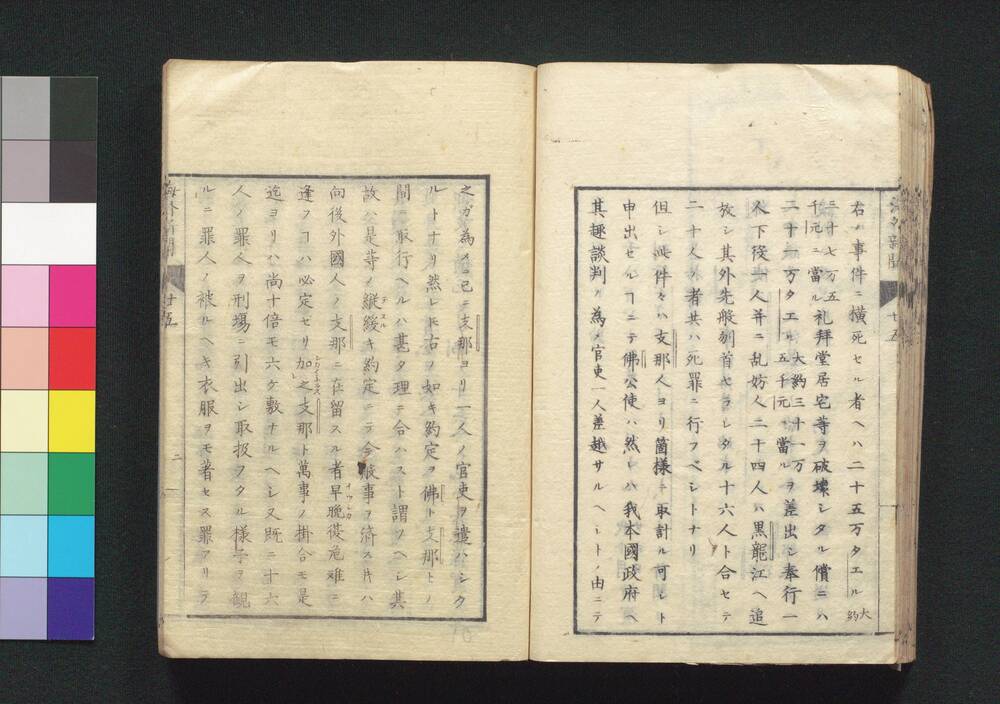 右ノ事件ニ横死セル者ヘハ二十五万タエル大約
三十七万五千元ニ當ル礼拜堂居宅等ヲ破壊シタル償ニハ
二十一万タエル大約三十一万五千元ニ當ルヲ差出シ奉行一
人下役一人并ニ乱妨人二十四人ハ黒龍江ヘ追
放シ其外先般刎首セラレタル十六人ト合セテ
二十人ノ者共ハ死罪ニ行フベシトナリ
但シ此件々ハ支那人ヨリ箇様ニ取計ル可シト
申出セルヿニテ佛公使ハ然レハ我本國政府ヘ
其趣談判ノ為メ官吏一人差越サルヘシトノ由ニテ
海外新聞
廿五
之ガ為メ已ニ支那ヨリ一人ノ官吏ヲ遣ハシタ
ルトナリ然レ𪜈右ノ如キ約定ヲ佛ト支那トノ
間ニ取行ヘルハ甚タ理ニ合ハスト謂フヘシ其
故ハ是等ノ縦綏キ約定ニテ今般事ヲ済ス片ハ
向後外國人ノ支那ニ在留スル者早晩從危難ニ
逢フヿハ必定セリ加之支那ト萬事ノ掛合モ是
迄ヨリハ尚十倍モ六ケ敷ナルヘシ又既ニ十六
人ノ罪人ヲ刑場ニ引出シ取扱フタル様子ヲ観
ルニ罪人ノ被ルヘキ衣服ヲモ著セス罪アリラ
海外新聞
廿五
二